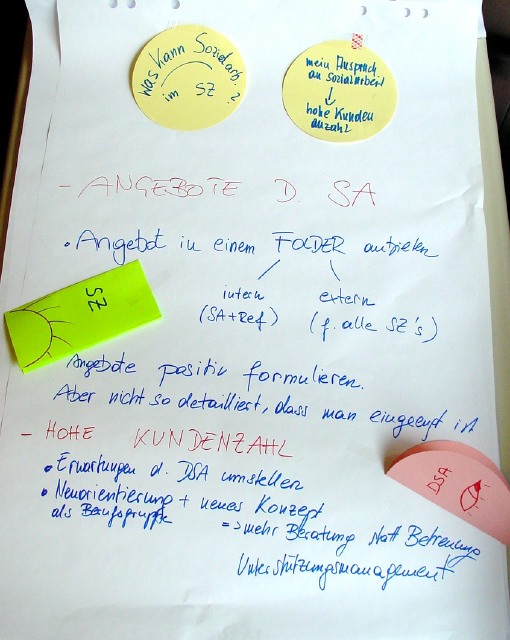 Was kann Sozialarb.
im SZ ?
mein Anspruch
an sozialarbeit
↓
hohe Kunden
anzahl
- ANGEBOTE D. SA
• Angebot in einem FOLDER auflisten
intern
(SA+Ref)
extern
(f. alle SZ's)
SZ
Angebote positiv formulieren.
Aber nicht so detailliert, dass man eingeengt ist
- HOHE KUNDENZAHL
• Erwartungen d. DSA umstellen
• Neuorientierung + neues Konzept
als Berufsgruppe
=> mehr Beratung statt Betreuung
Unterstützungsmanagement
DSA